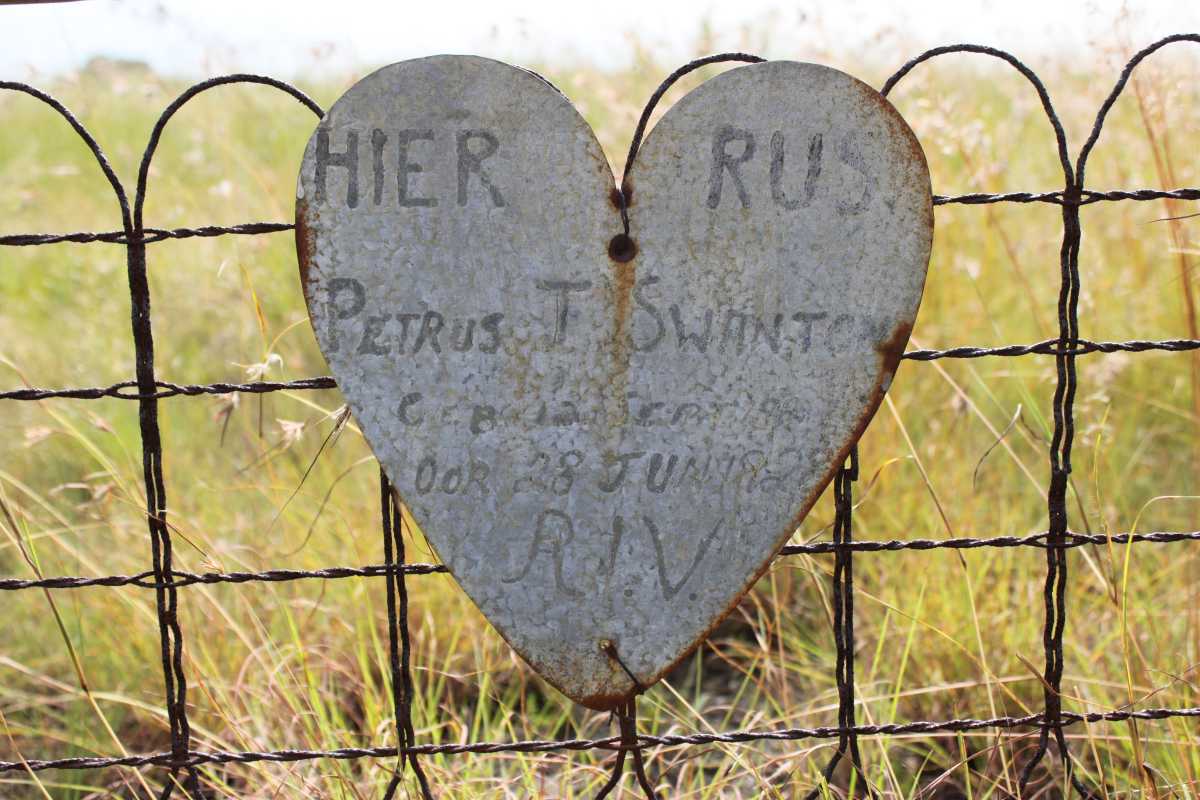 HIER RUS.
PETRUS T SWANTON
GEB 12 SEPT
OOR 28 JUN
R.I.V.